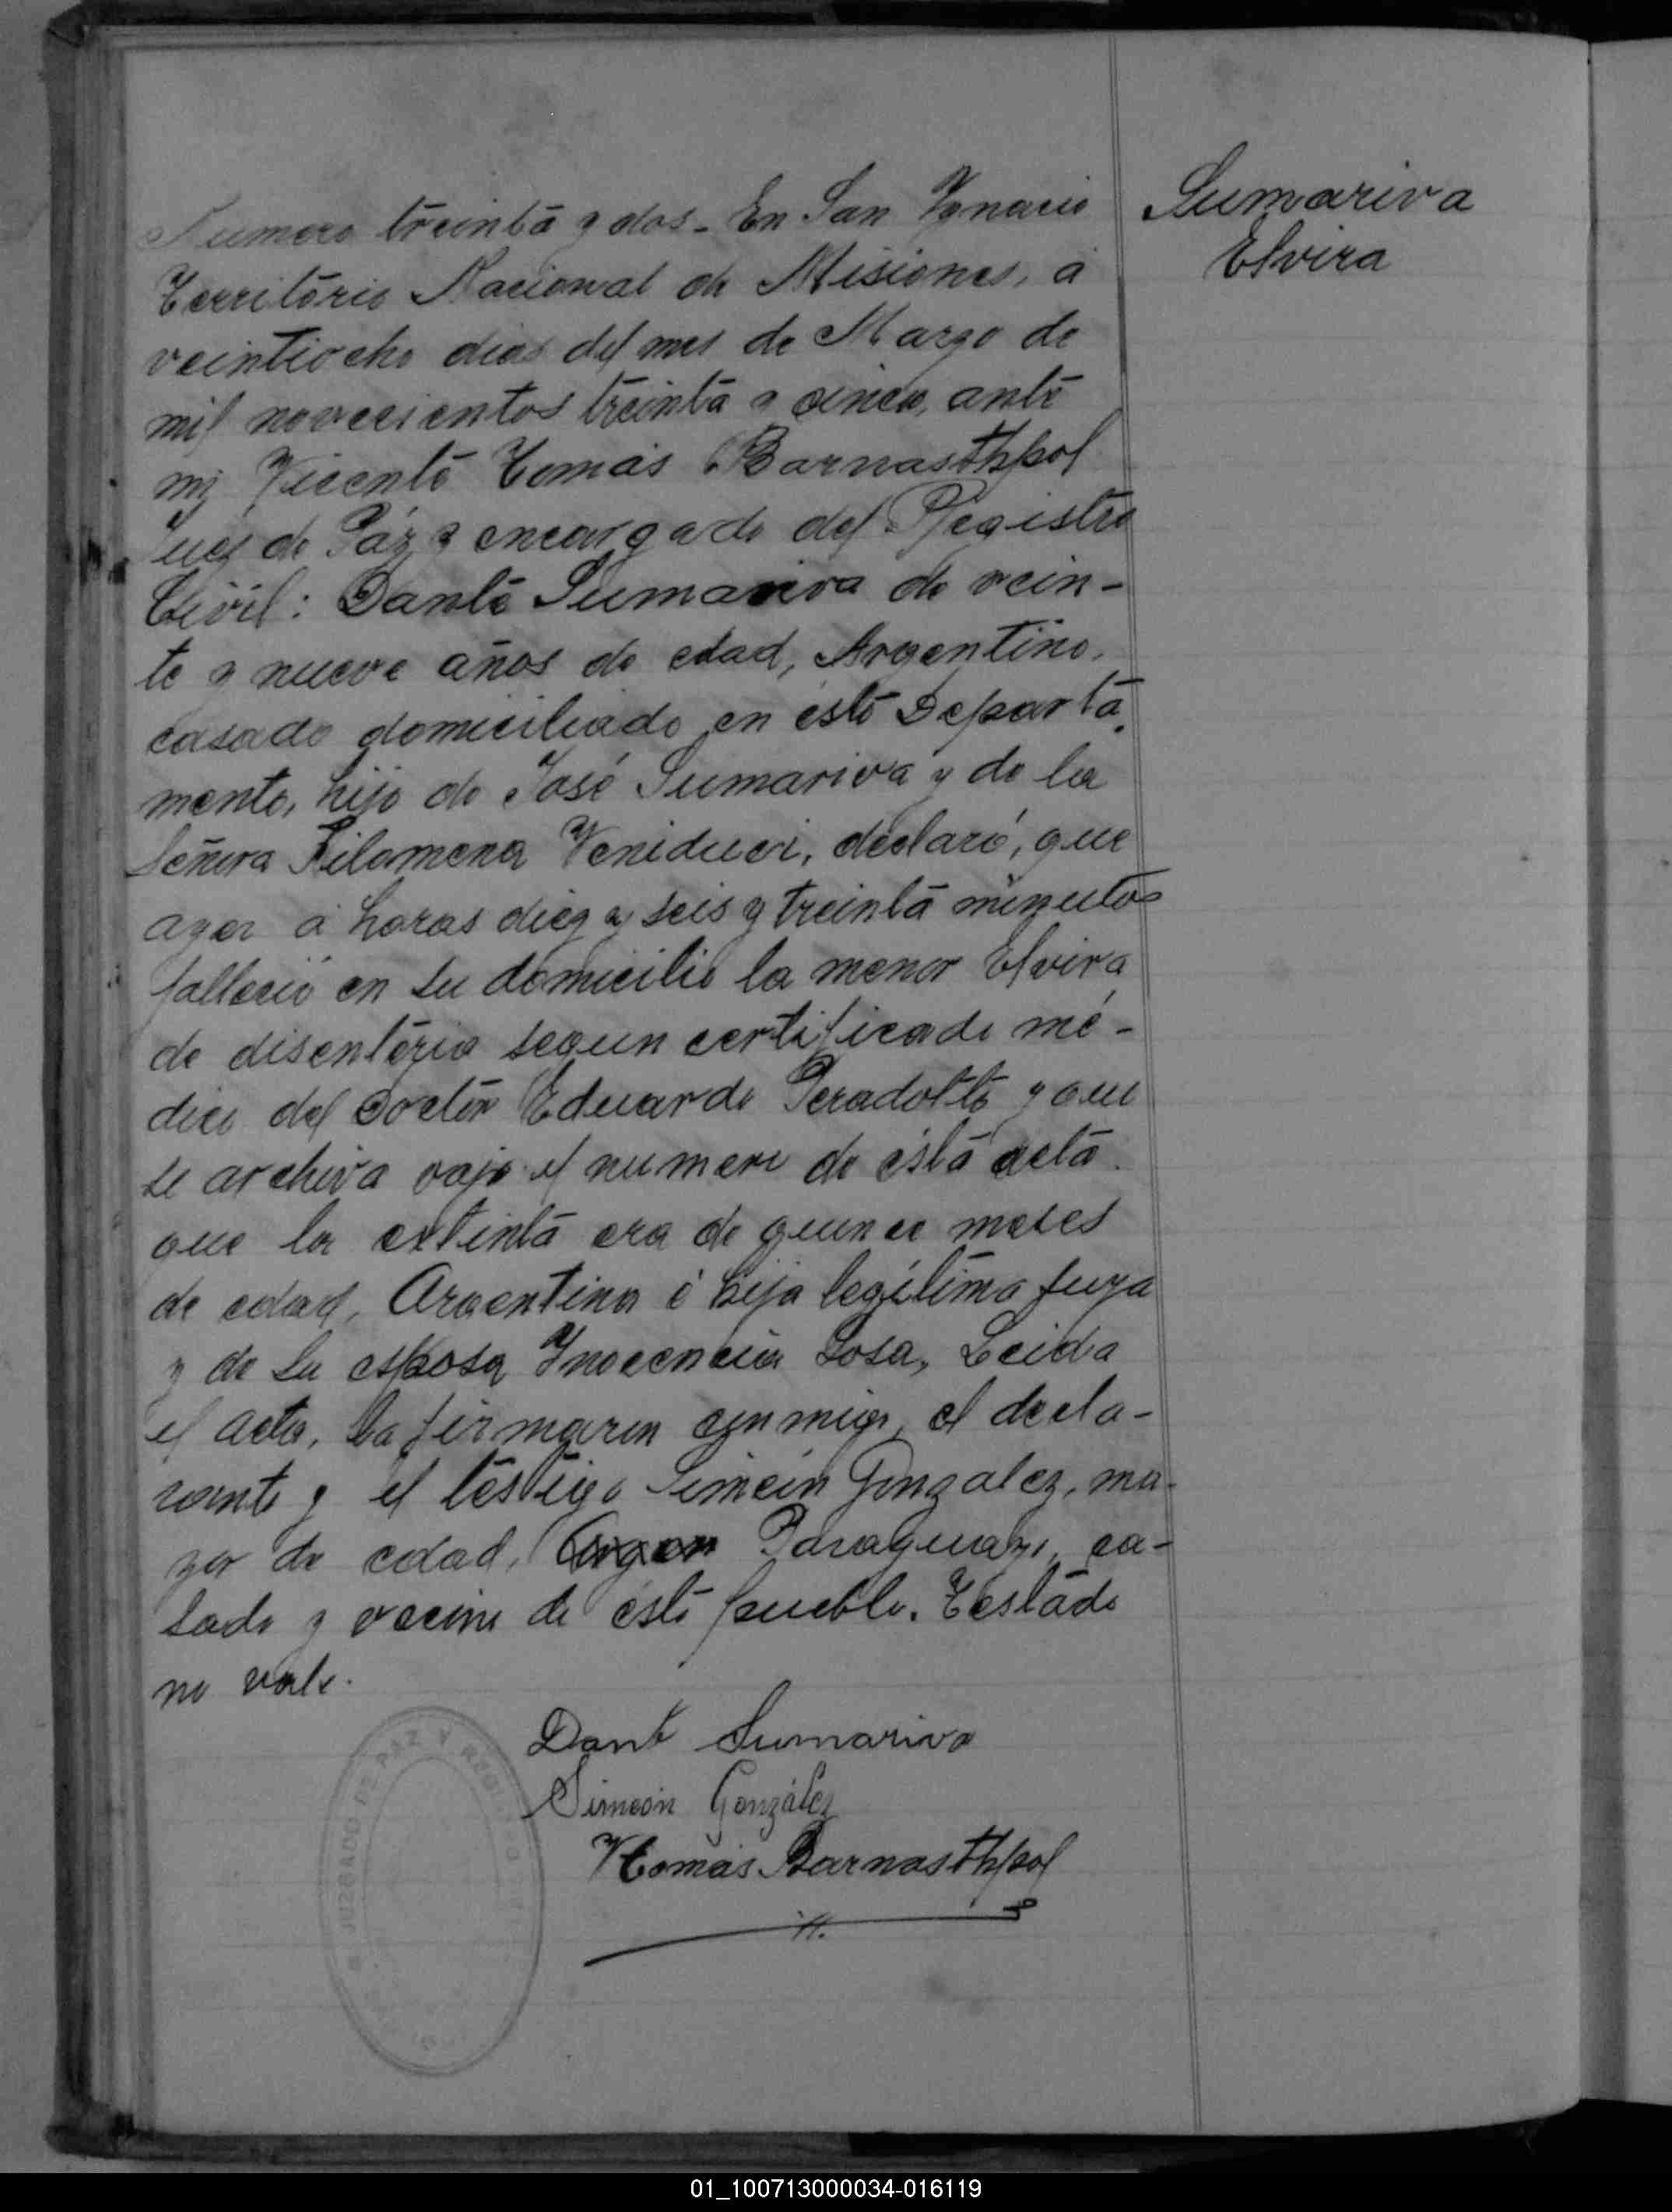 Numero treinta y dos - En San Ygnacio
Territorio Nacional de Misiones, á
veintiocho dias del mes de Marzo de
mil novecientos treinta y cinco, ante
mi Vicente Tomás Barnasthpol
Juez de Páz y encargado del Registro
Civil: Dante Sumariva de vein-
te y nueve años de edad, Argentino,
casado domiciliado en éste Departa
mento, hijo de José Sumariva y de la
Señora Filomena Veniduci, declaró, que
ayer á horas diez y seis y treinta minutos
falleció en su domicilio la menor Elvira
de disenteria segun certificado mé-
dico del Doctor Eduardo Peradotto y que
se archiva vajo el numero de ésta acta.
que la extinta era de quince meses
de edad, Argentina é hija legítima suya
y de su esposa Ynocencia Sosa, Leida
el acta, la firmaron conmigo, el decla-
rante y el testigo Simeón Gonzalez, ma-
yor de edad, Paraguayo, ca-
sado y vecino de éste pueblo. Testado
no vale.
Dante Sumariva
Simeón González
VTomás Barnasthpol
JUZGADO DE PAZ Y REGISTRO
Sumariva
Elvira
01_100713000034-016119